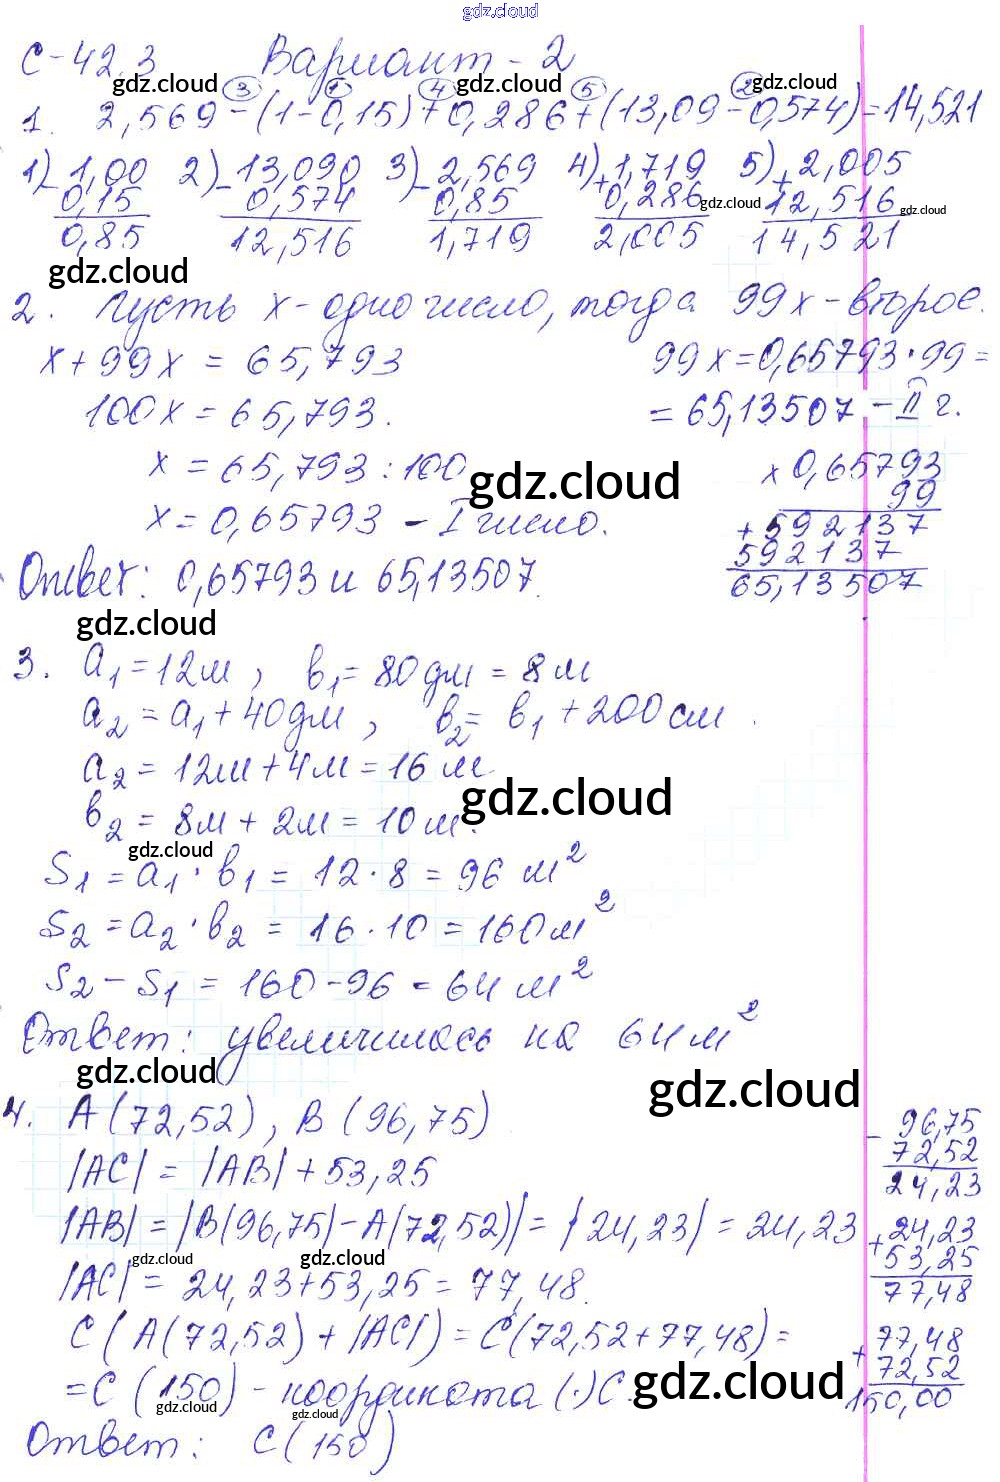 gdz.cloud
С-42.3 Вариант-2
gdz.cloud gdz.cloud gdz.cloud
3 1 4 5 2
1. 2,569-(1-0,15)+0,286+(13,09-0,574)=14,521
1) 1,00 2) 13,090 3) 2,569 4) 1,719 5) 2,005
- 0,15 - 0,574 - 0,85 + 0,286 + 12,516
0,85 12,516 1,719 2,005 14,521
gdz.cloud gdz.cloud
gdz.cloud
2. Пусть х-одно число, тогда 99х-второе.
х+99х = 65,793 99х=0,65793·99=
100х=65,793. = 65,13507 - II ч.
х = 65,793:100
gdz.cloud
х 0,65793
99
х=0,65793 - I число.
+ 592137
592137
65,13507
Ответ: 0,65793 и 65,13507.
gdz.cloud
3. a₁=12м, b₁=80дм=8м
a₂=a₁+40дм, b₂=b₁+200см.
a₂=12м+4м=16м
gdz.cloud
b₂=8м+2м=10м.
gdz.cloud
S₁=a₁·b₁=12·8=96 м²
S₂=a₂·b₂=16·10=160м²
S₂-S₁=160-96=64 м²
Ответ: увеличилось на 64 м²
gdz.cloud gdz.cloud
4. А(72,52), В(96,75)
- 96,75
72,52
24,23
|АС| = |АВ|+53,25
|АВ|=|В(96,75)-А(72,52)|=|24,23|=24,23
+ 24,23
53,25
77,48
gdz.cloud gdz.cloud
|АС|=24,23+53,25=77,48.
С(А(72,52)+|АС|)=С(72,52+77,48)=
+ 77,48
72,52
150,00
=С(150)-координата (·)С.
gdz.cloud
gdz.cloud gdz.cloud
Ответ: С(150)